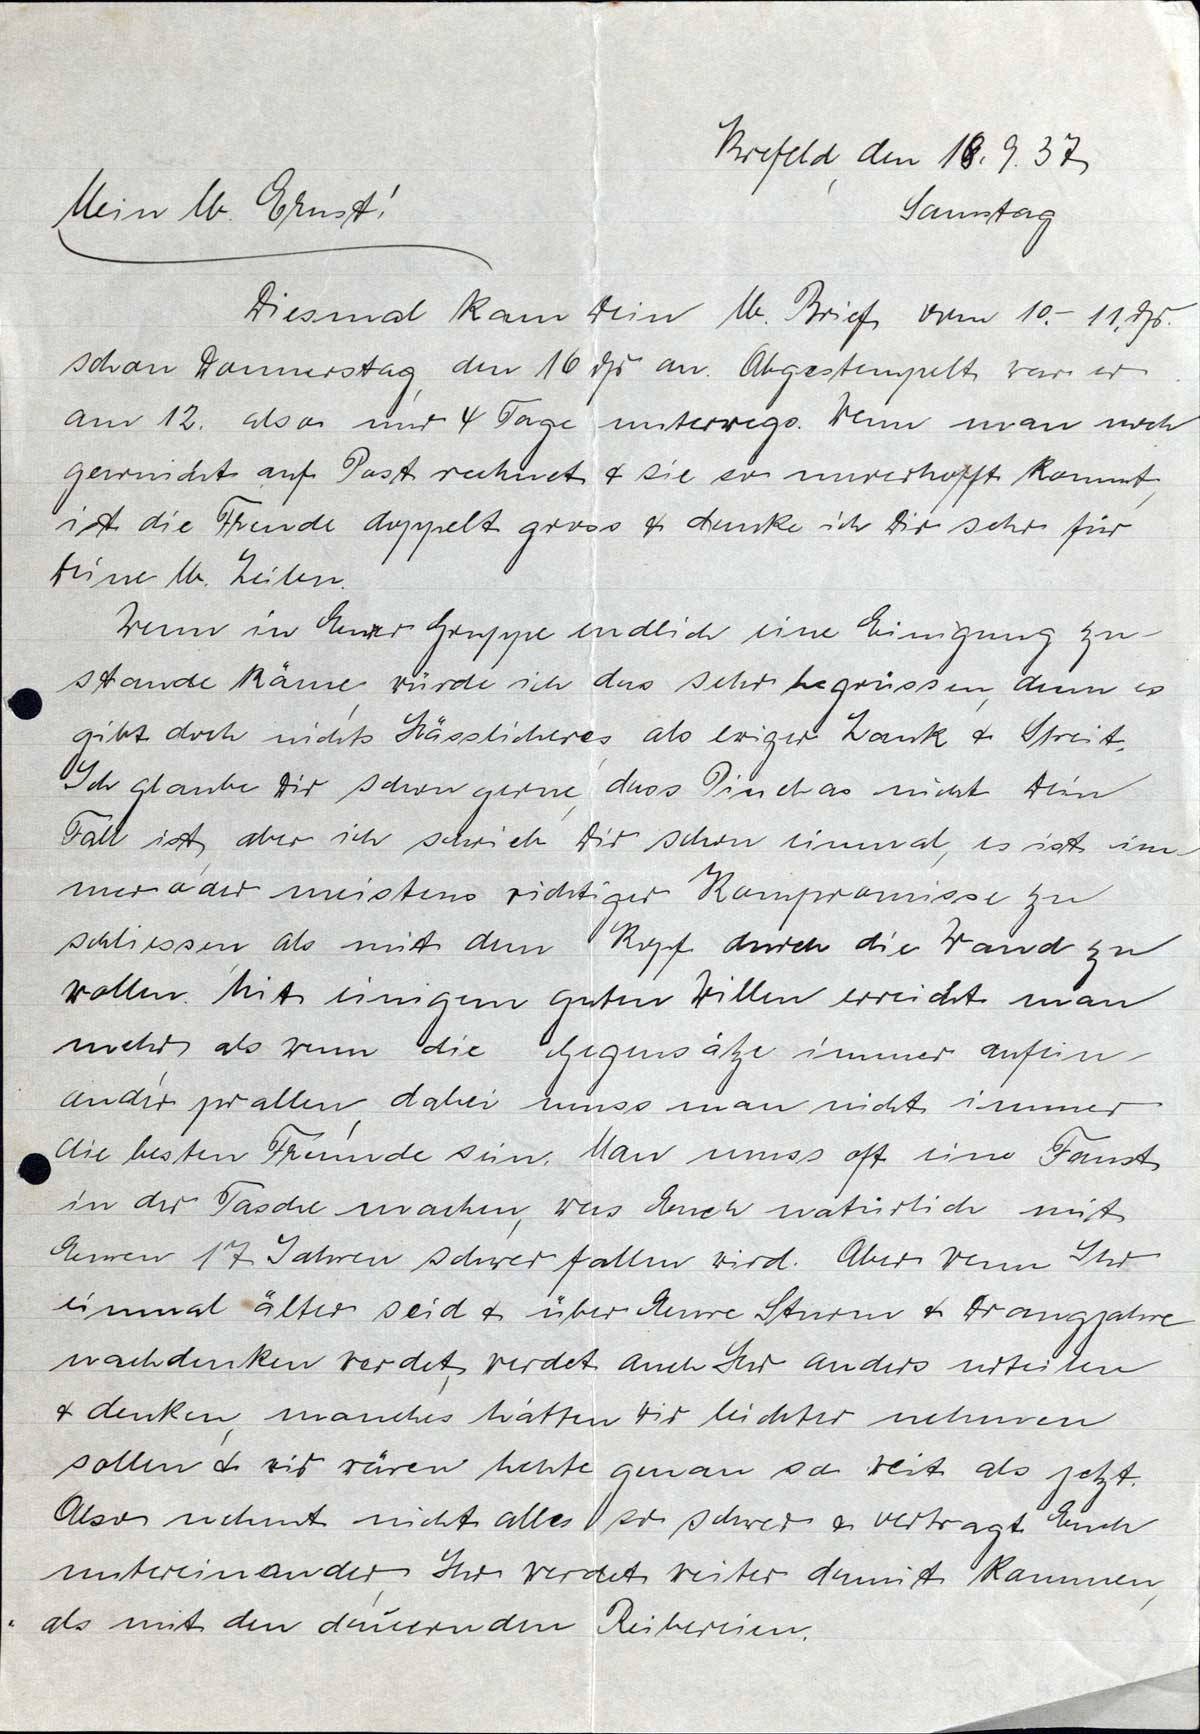 Krefeld, den 18. 9. 37
Samstag
Mein lb. Ernst!
Diesmal kam Dein lb. Brief vom 10.- 11. ds.
schon Donnerstag, den 16 ds an. Abgestempelt war er
am 12. also nur 4 Tage unterwegs. Wenn man noch
garnicht auf Post rechnet & sie so unverhofft kommt,
ist die Freude doppelt gross & danke ich Dir sehr für
Deine lb. Zeilen.
Wenn in Eurer Gruppe endlich eine Einigung zu-
stande käme, würde ich das sehr begrüssen, denn es
gibt doch nichts Hässlicheres, als ewiger Zank & Streit.
Ich glaube Dir schon gerne, dass Pinchas nicht Dein
Fall ist, aber ich schrieb Dir schon einmal, es ist im-
mer oder meistens richtiger Kompromisse zu
schliessen, als mit dem Kopf durch die Wand zu
wollen. Mit einigem guten Willen erreicht man
mehr, als wenn die Gegensätze immer aufein-
ander prallen, dabei muss man nicht immer
die besten Freunde sein. Man muss oft eine Faust
in der Tasche machen, was Euch natürlich mit
Euren 17 Jahren schwer fallen wird. Aber wenn Ihr
einmal älter seid & über Eure Sturm & Drangjahre
nachdenken werdet, werdet auch Ihr anders urteilen
& denken, manches hätten wir leichter nehmen
sollen & wir wären heute genau so weit als jetzt.
Also nehmt nicht alles so schwer & vertragt Euch
untereinander, Ihr werdet weiter damit kommen,
als mit den dauernden Reibereien.